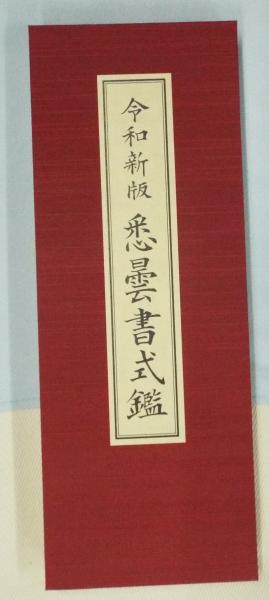 令和新版 悉曇書式鑑